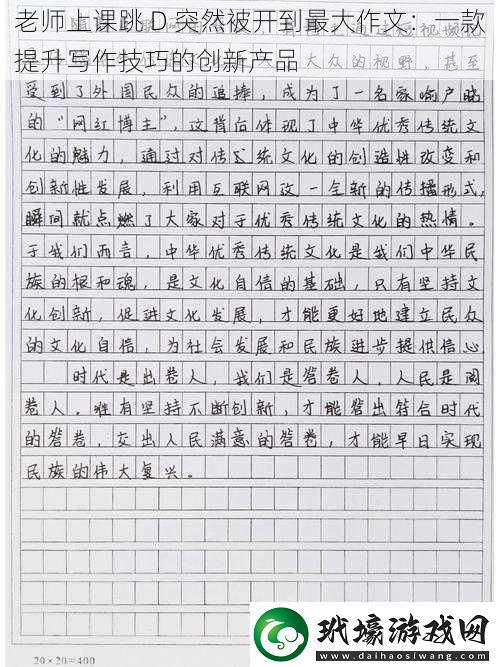 老师上课跳 D 突然被开到最大作文：一款
提升写作技巧的创新产品
短视频
大众的视野，甚至
受到了外国民众的追捧，成为了一名家喻户晓
的“网红博主”，这背后体现了中华优秀传统文
化的魅力，通过对传统文化的创造性改变和
创新性发展，利用互联网这一全新的传播形式，
瞬间就点燃了大家对于优秀传统文化的热情。
于我们而言，中华优秀传统文化是我们中华民
族的根和魂，是文化自信的基础，只有坚持文
化创新，促进文化发展，才能更好地建立民众
的文化自信，为社会发展和民族进步提供信心
时代是出卷人，我们是答卷人，人民是阅
卷人。唯有坚持不断创新，才能答出符合时代
的答卷，交出人民满意的答卷，才能早日实现
民族的伟大复兴。
20×20=400
玳壕游戏网
www.daihaosiwei.com